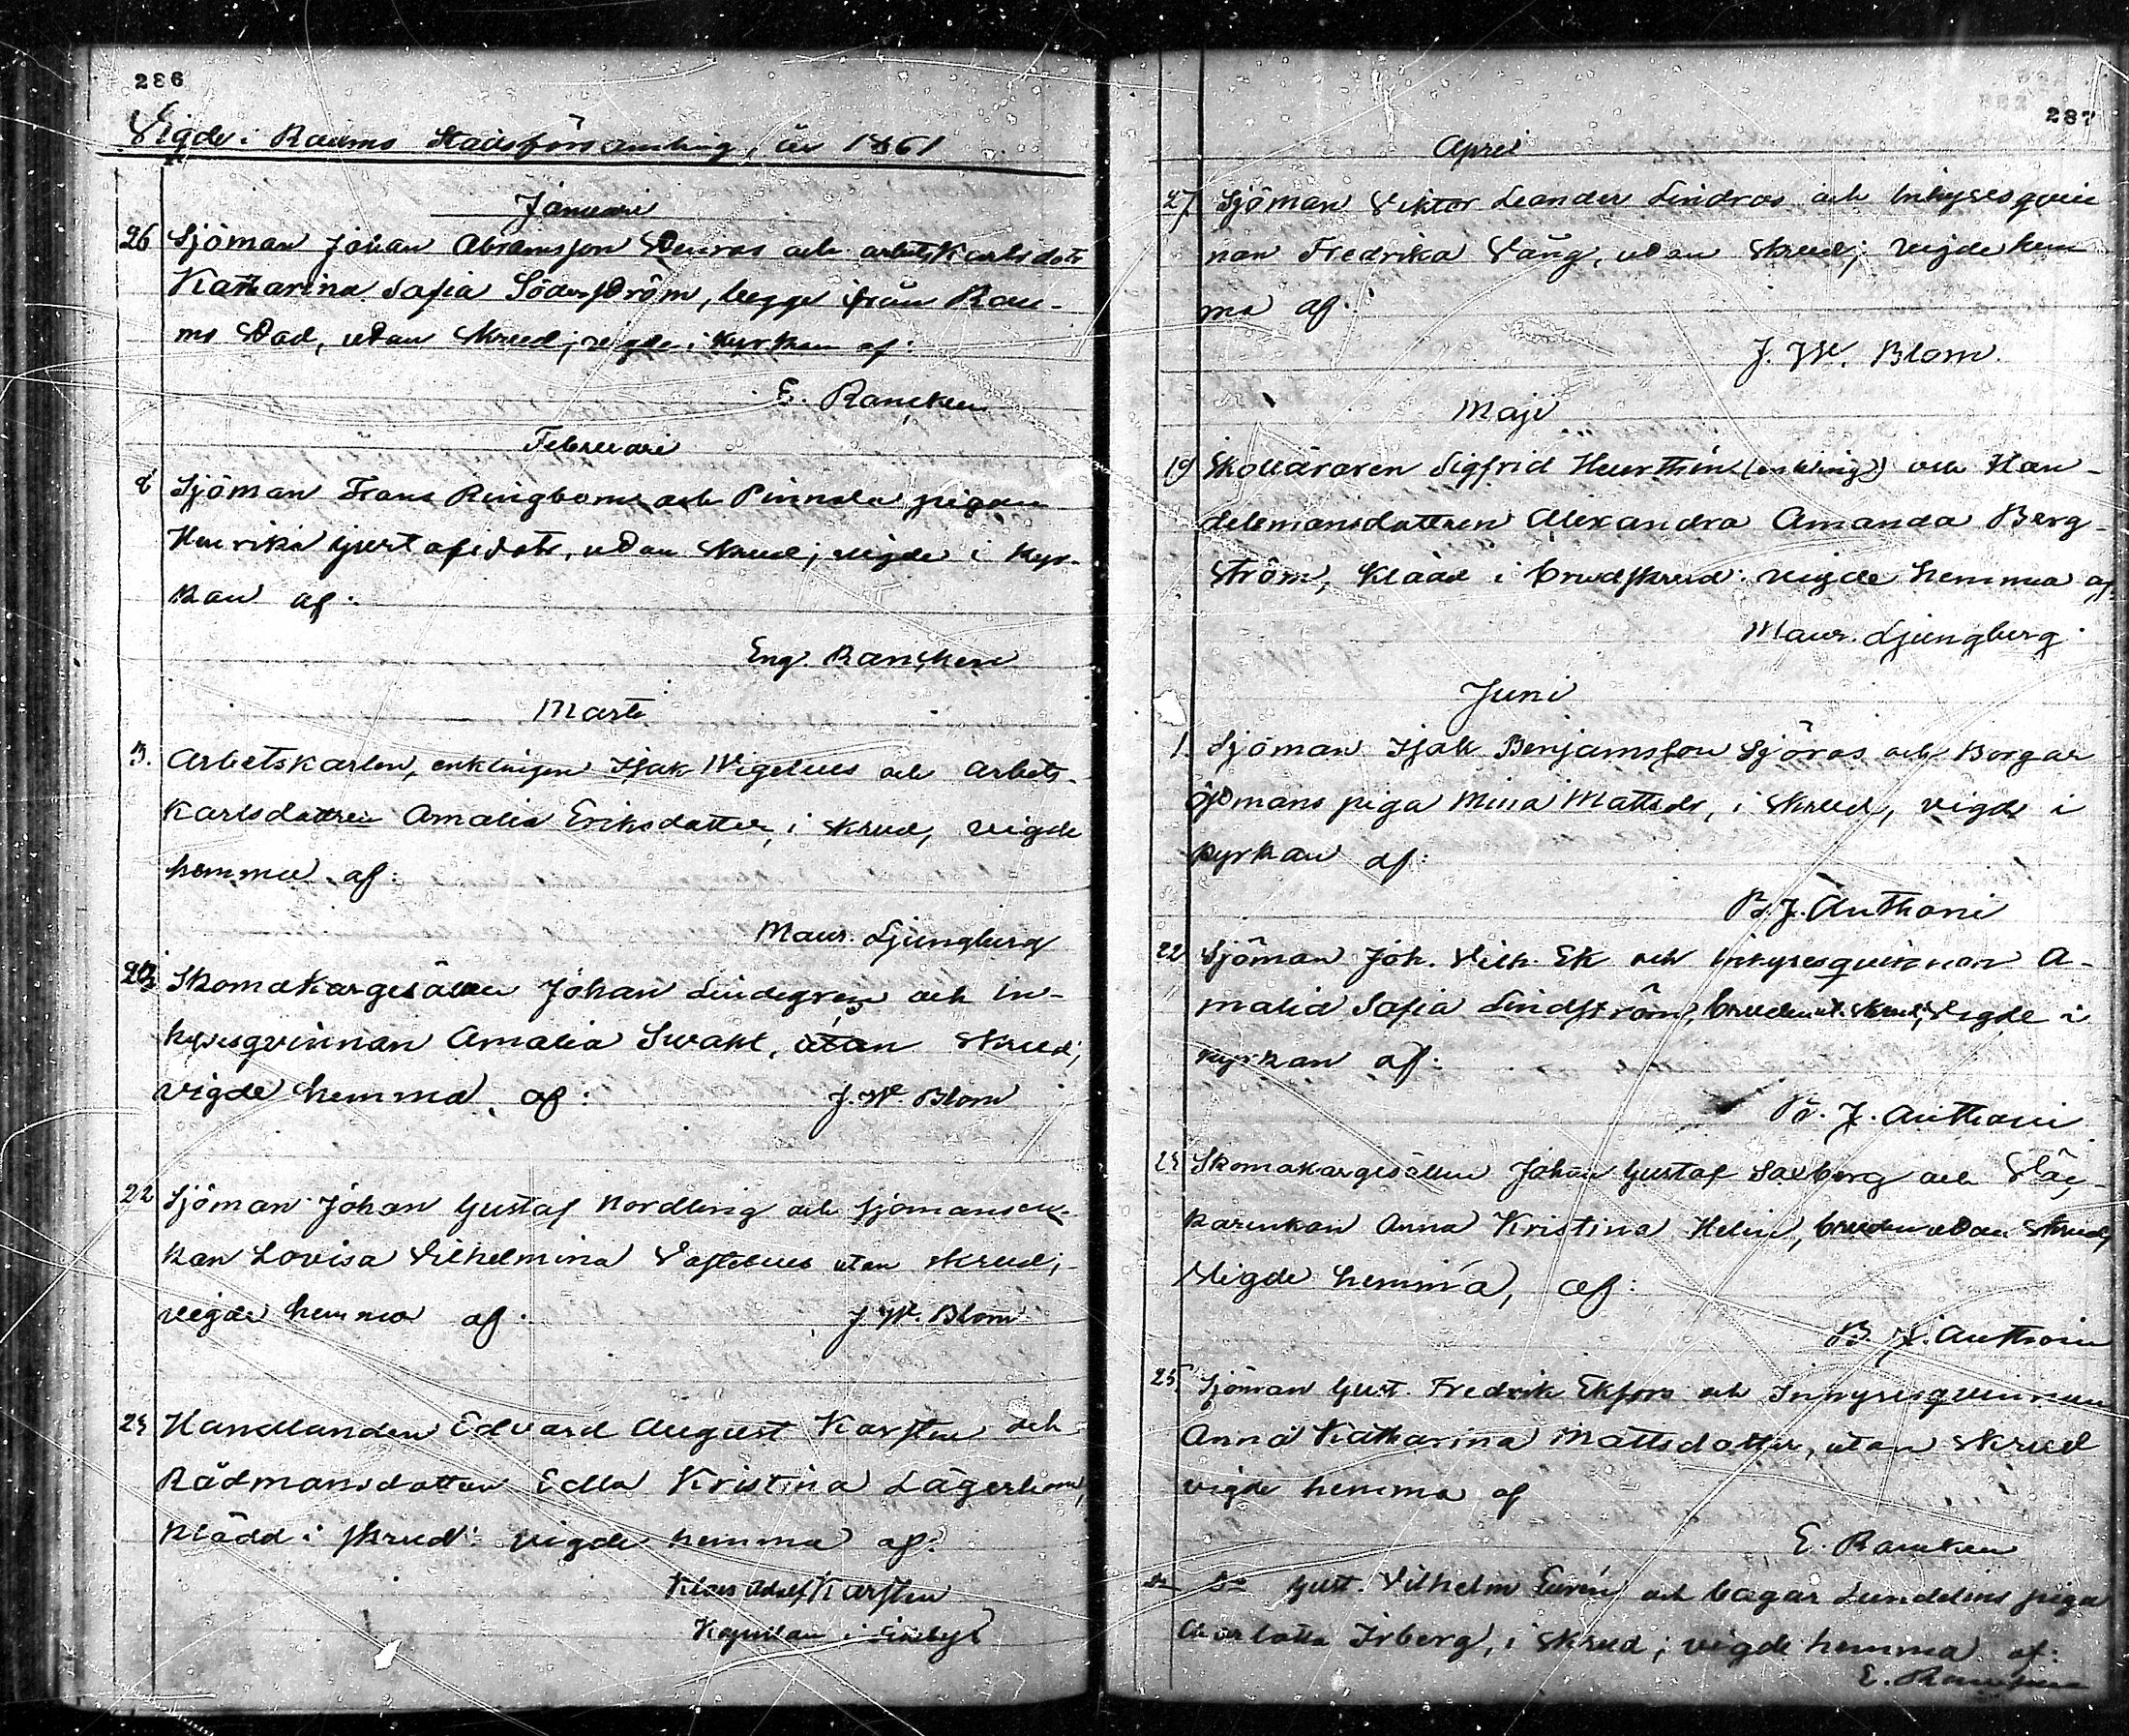 286
Vigde i Raumo Stadsförsamling, år 1861
Januari
26 Sjöman Johan Abramsson och arbetskarlsdott
Katharina Sofia Söderström, begge från Rau-
mo Stad, utan Skrud; vigde i Kyrkan af:
E. Rancken
Februari
Sjöman Frans Ringbom och Pinnala pigan
Henrika Gustafsdotr, utan Skrud; vigde i Kyr-
kan af:
Eng. Rancken
Marti
3. Arbetskarlen, enklingen Isak Wigelius och Arbets-
Karlsdottren Amalia Eriksdotter, i skrud, vigde
hemma af:
Maur. Ljungberg
Skomakargesällen Johan Lindegren och In-
hysesqvinnan Amalia Swahl, utan Skrud;
vigde hemma, af: J. W. Blom
22 Sjöman Johan Gustaf Nordling och Sjömansen-
kan Lovisa Vilhelmina utan skrud;
vigde hemma af: J. W. Blom
Handlanden Edvard August Karsten och
Rådmansdottren Edla Kristina Lagerbom,
klädd i skrud: vigde hemma af:
Klas Adolf Karsten
Kapellan i
287
April
27 Sjöman Viktor Leander Lindros och Inhysesqvin
nan Fredrika Lång, utan Skrud; vigde hem
ma af:
J. W. Blom
Maji
19 Skolläraren Sigfrid (enkling) och Han-
delsmansdottren Alexandra Amanda Berg-
ström, klädd i brudskrud: vigde hemma af:
Maur. Ljungberg
Juni
1. Sjöman Isak Benjamsson Sjöros och Borgar
piga Mina Mattsdr, i Skrud, vigde i
Kyrkan af:
B. J. Anthoni
22 Sjöman Joh. Vilh. Ek och Inhysesqvinnan A-
malia Sofia Lindström, bruden ut. skrud; Vigde i
kyrkan af:
B. J. Anthoni
Skomakargesällen Johan Gustaf Salberg och
Anna Kristina Helin, bruden utan Skrud;
Vigde hemma, af:
B. J. Anthoni
25. Sjöman Gust. Fredrik Ekfors och Inhysesqvinnan
Anna Katharina Mattsdotter, utan Skrud
vigde hemma af
E. Rancken
Do Gust. Vilhelm och bagar Lundelins piga
Charlotta Irberg, i Skrud; vigde hemma af:
E. Rancken